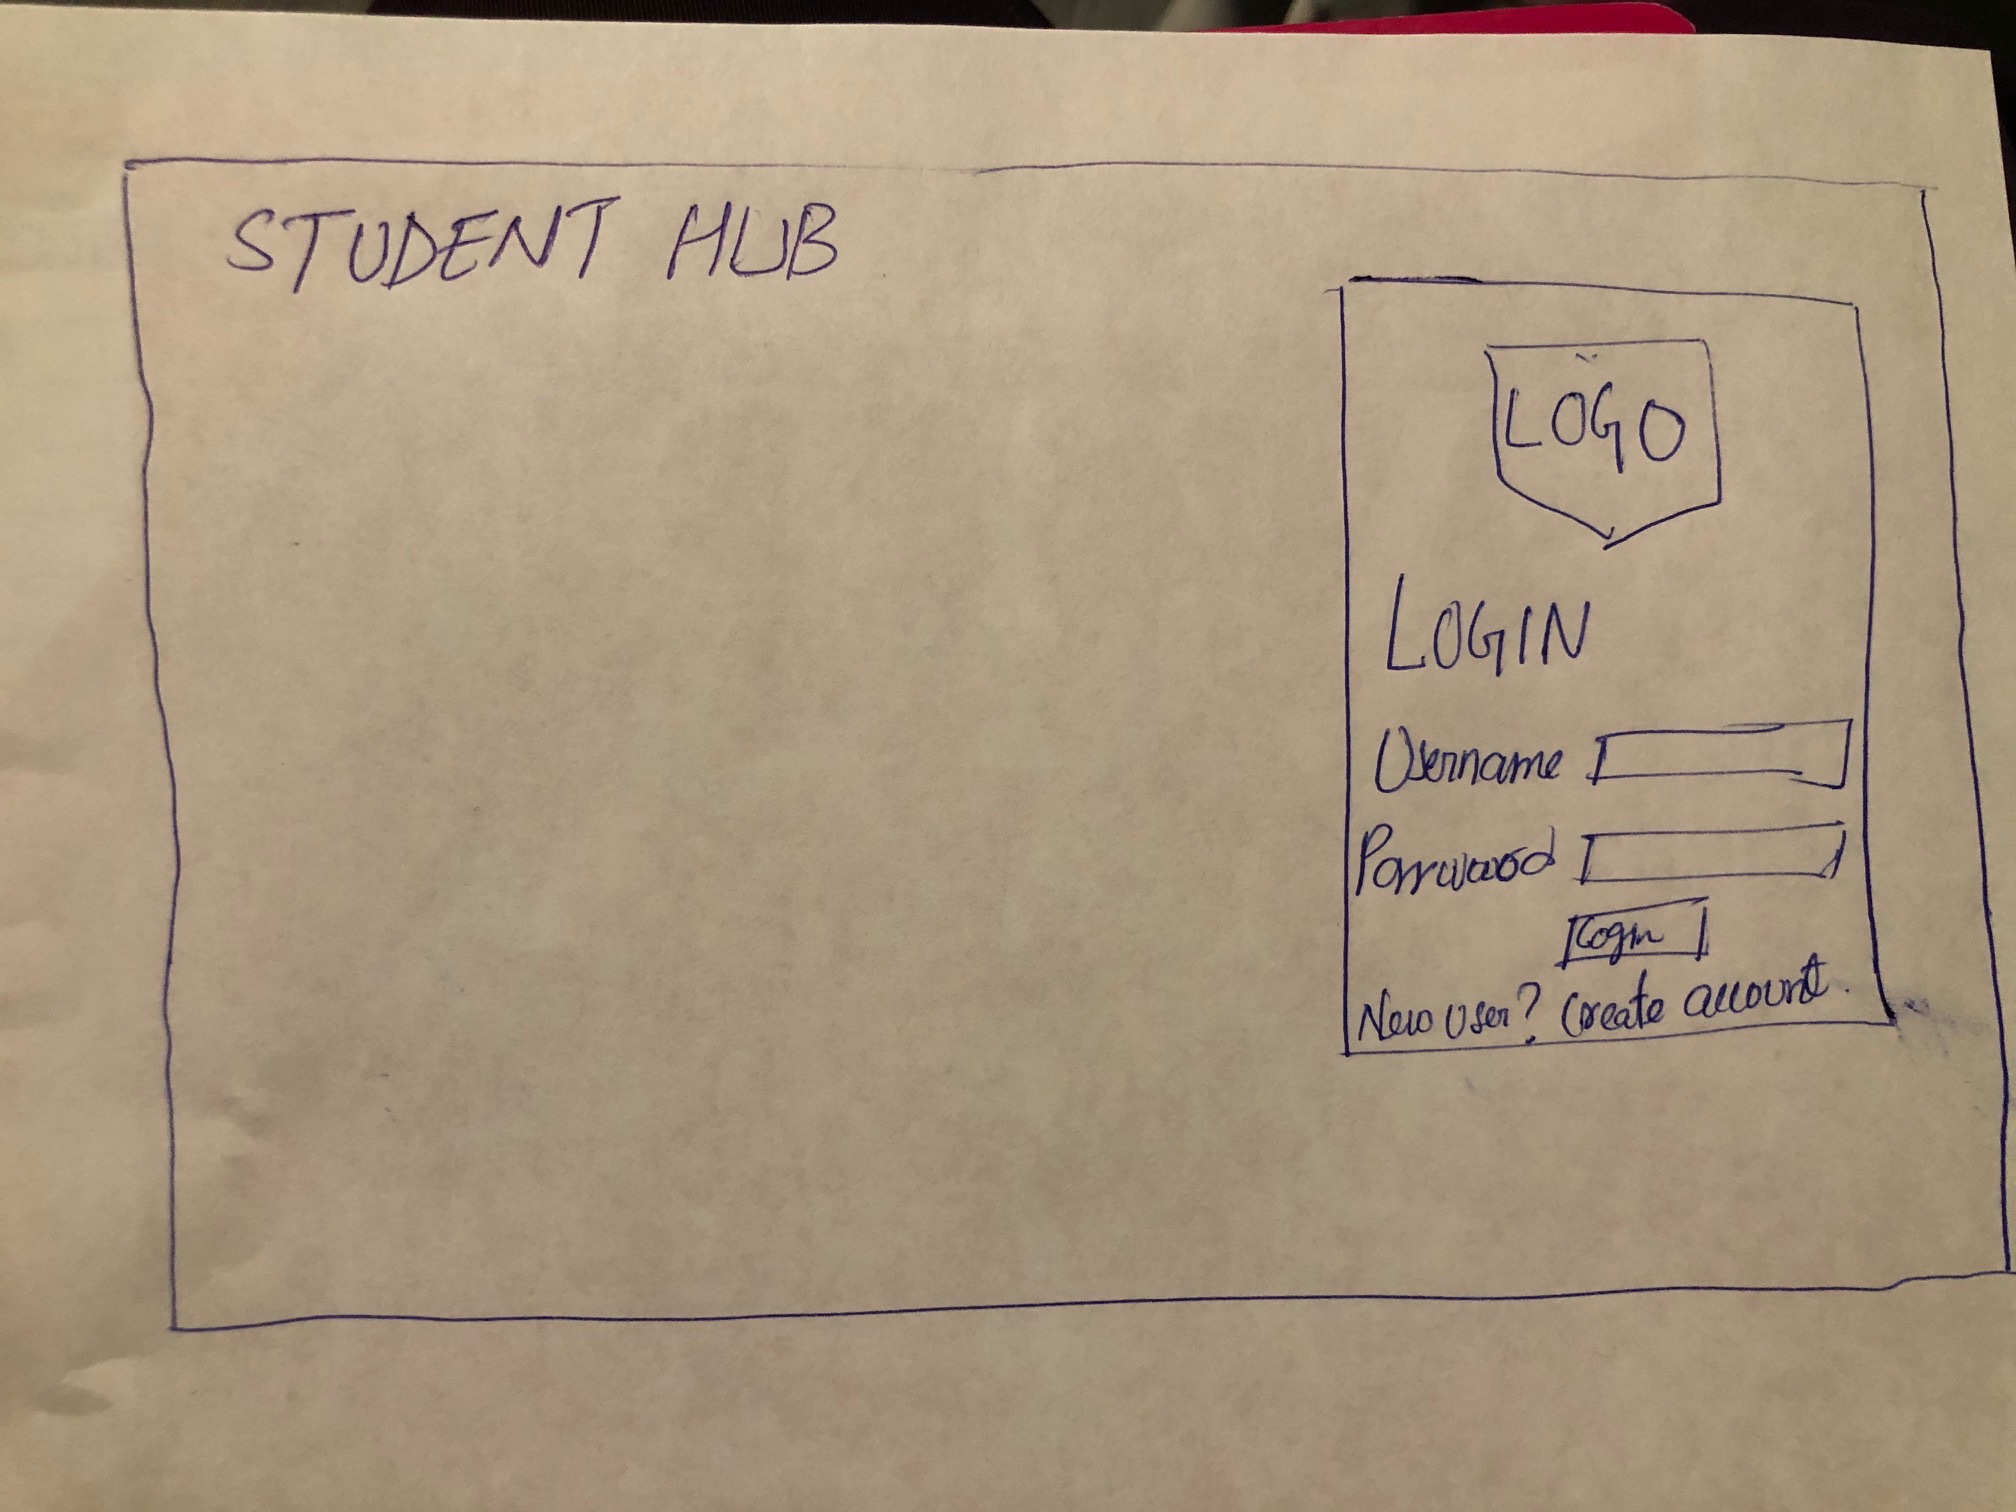 STUDENT HUB
LOGO
LOGIN
Username
Password
Login
New user? Create account.